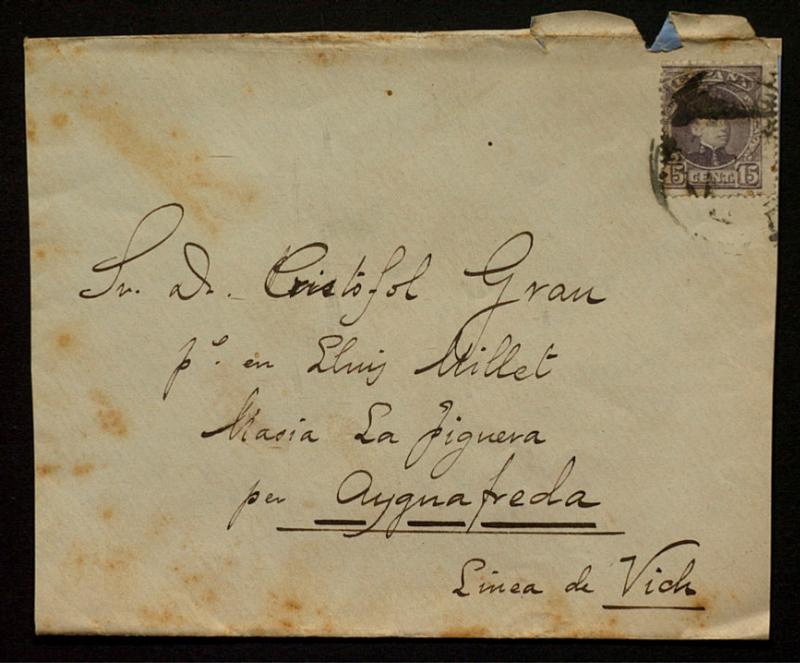 ESPAÑA
15 CENT. 15
Sr. Dr. Cristòfol Grau
pº. en Lluis Millet
Masia La Figuera
per Ayguafreda
Linea de Vich